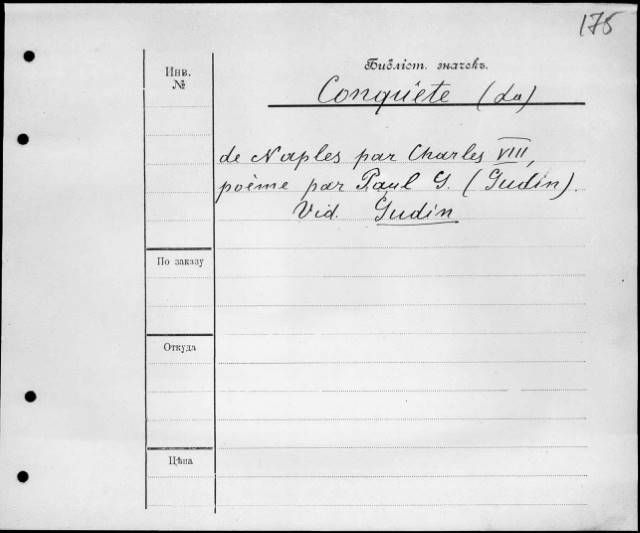 175
Библіот. значекъ.
Инв.
№
Conquête (La)
de Naples par Charles VIII,
poème par Paul G. (Gudin).
Vid. Gudin
По заказу
Откуда
Цѣна